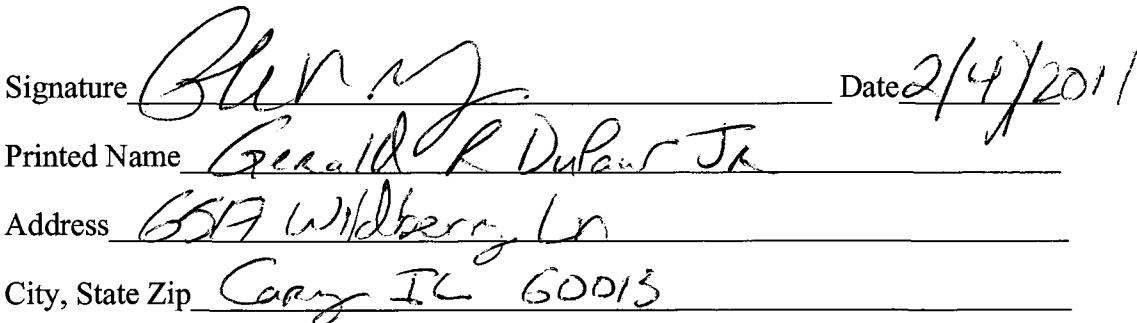 Signature Date 2/4/2011
Printed Name Gerald R DuPaur JR
Address 651A Wildberry Ln
City, State Zip Cary IL 60013